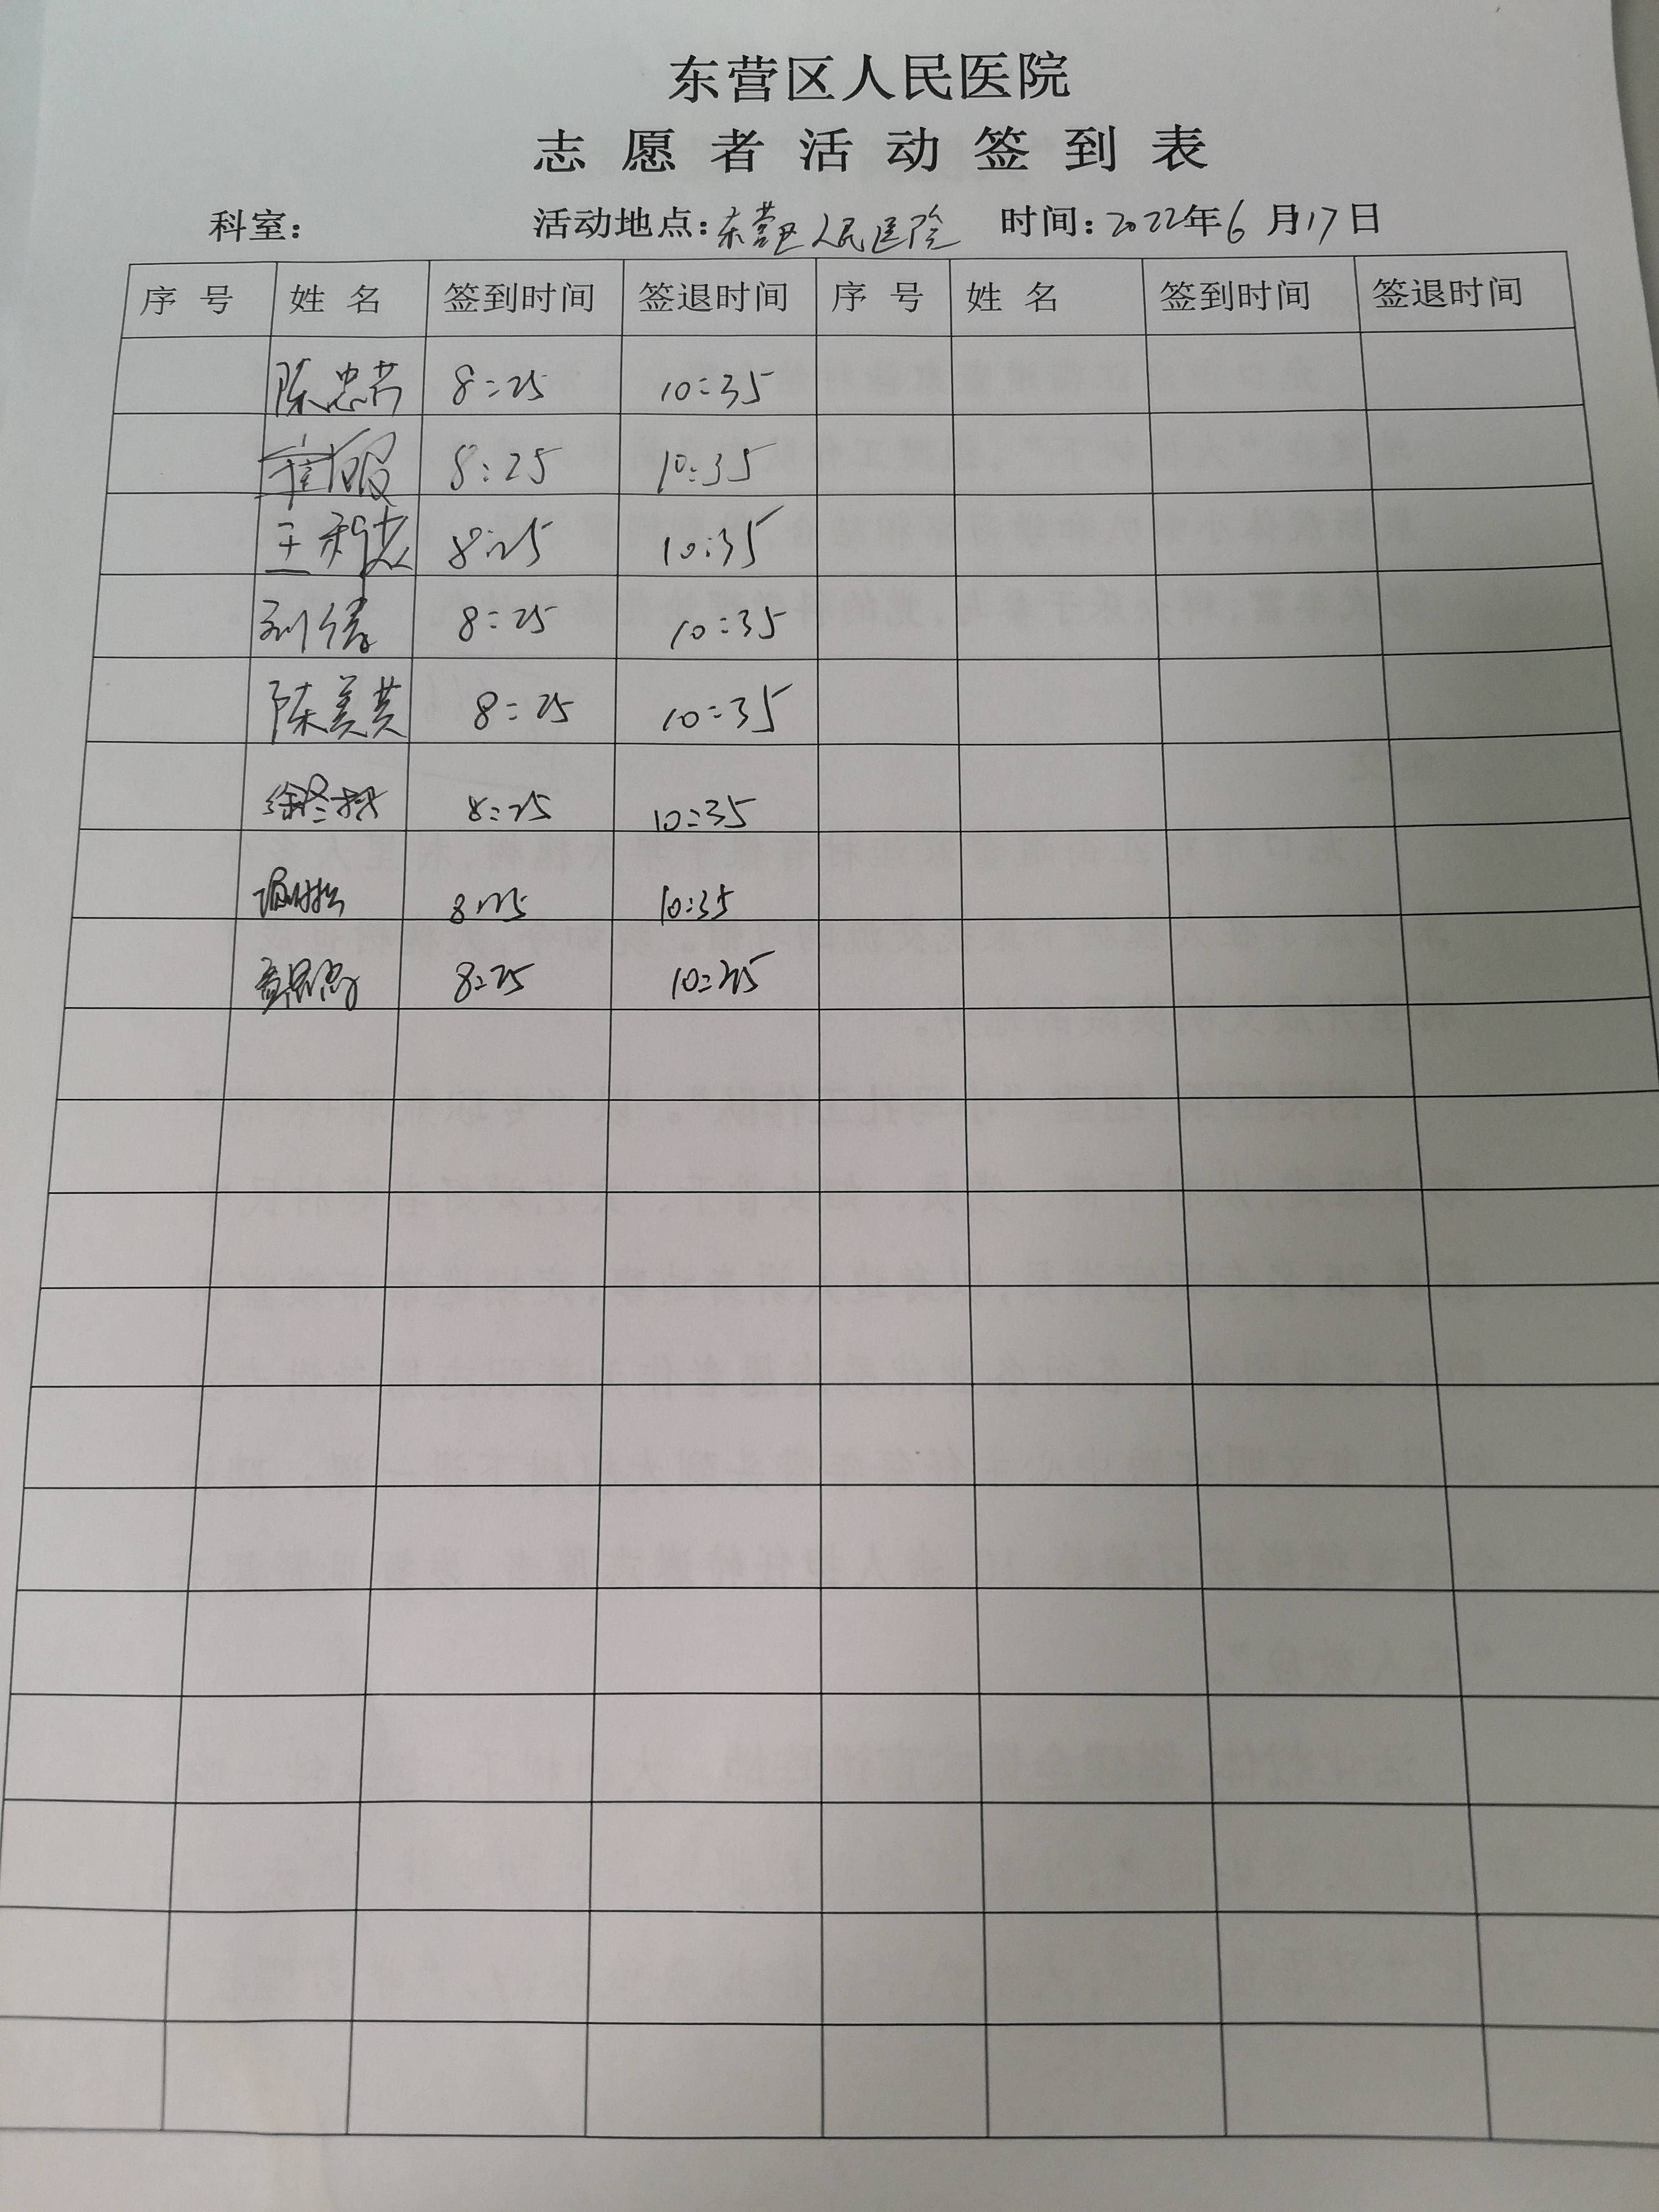 东营区人民医院
志愿者活动签到表
科室： 活动地点：东营区人民医院 时间：2022年6月17日
序号 姓名 签到时间 签退时间 序号 姓名 签到时间 签退时间
陈忠芳 8:25 10:35
8:25 10:35
王 8:25 10:35
刘倩 8:25 10:35
陈美英 8:25 10:35
徐 8:25 10:35
8:25 10:35
8:25 10:35